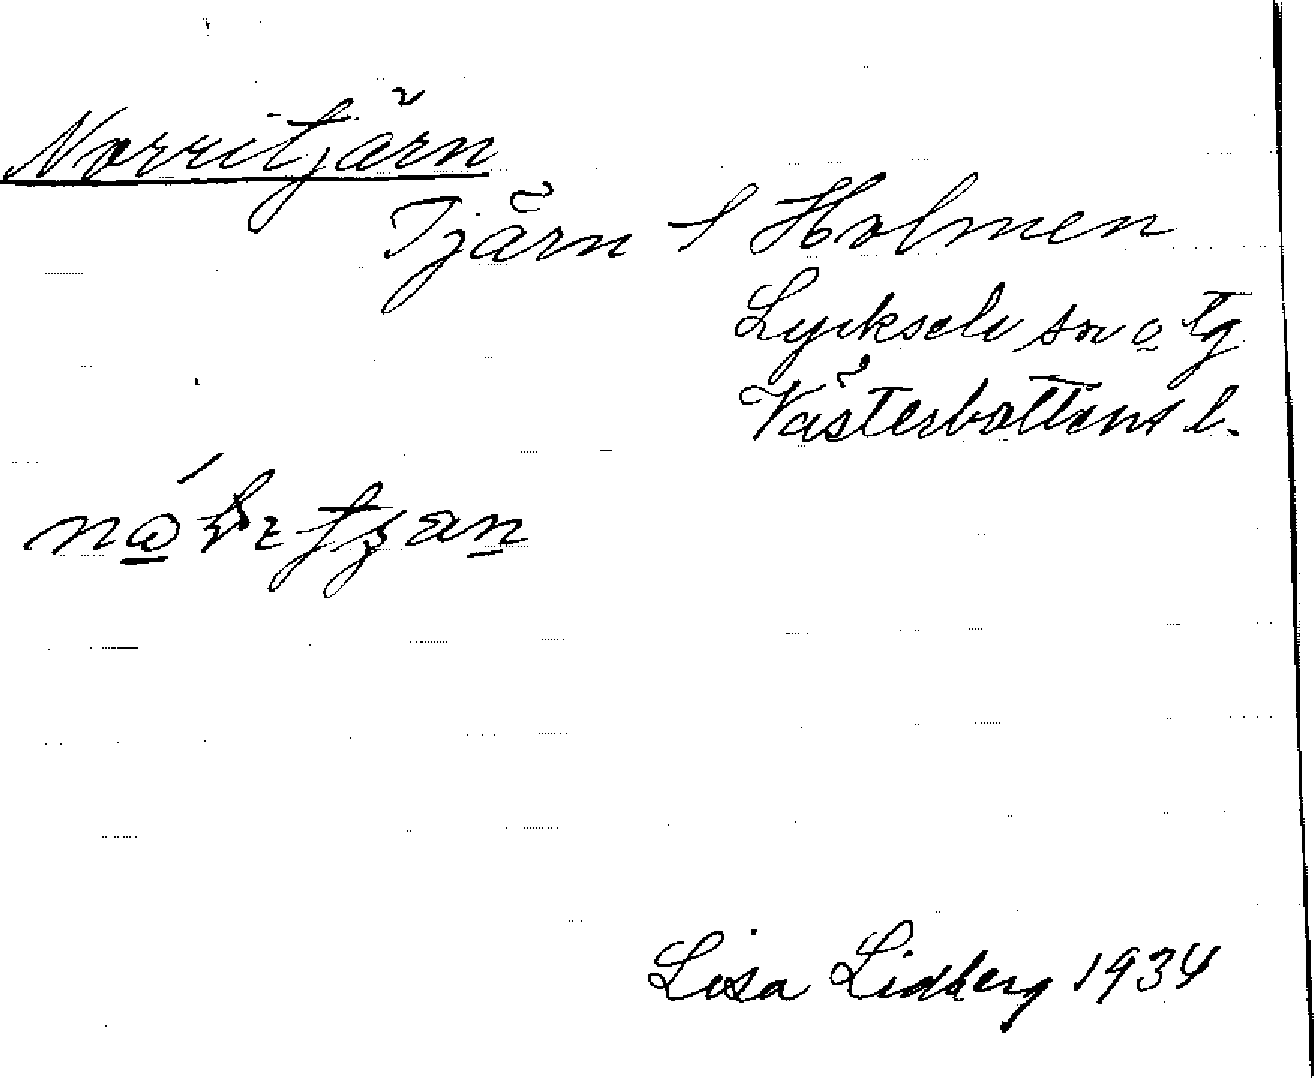 Norritjärn
Tjärn f Holmen
Lycksele sn o tg
Västerbottens l.
Lisa Lidberg 1934